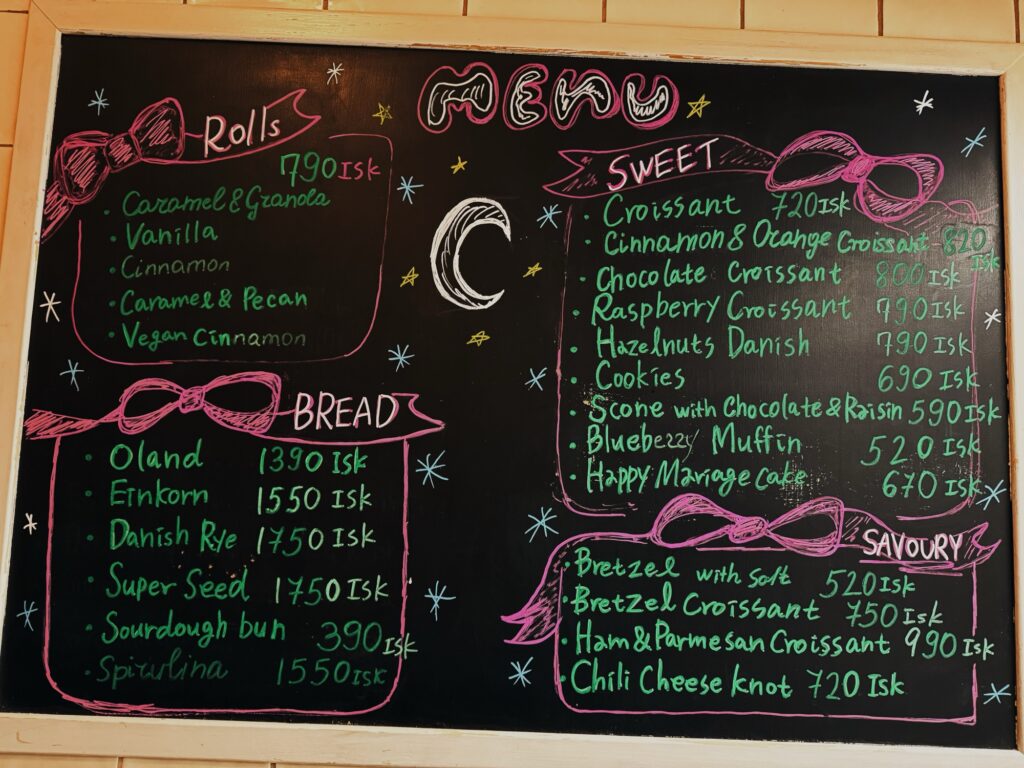 MENU
Rolls
790 Isk
· Caramel & Granola
· Vanilla
· Cinnamon
· Caramel & Pecan
· Vegan Cinnamon
BREAD
· Oland 1390 Isk
· Einkorn 1550 Isk
· Danish Rye 1750 Isk
· Super Seed 1750 Isk
· Sourdough bun 390 Isk
· Spirulina 1550 Isk
SWEET
· Croissant 720 Isk
· Cinnamon & Orange Croissant 820 Isk
· Chocolate Croissant 800 Isk
· Raspberry Croissant 790 Isk
· Hazelnuts Danish 790 Isk
· Cookies 690 Isk
· Scone with Chocolate & Raisin 590 Isk
· Blueberry Muffin 520 Isk
· Happy Mariage cake 670 Isk
SAVOURY
· Bretzel with Salt 520 Isk
· Bretzel Croissant 750 Isk
· Ham & Parmesan Croissant 990 Isk
· Chili Cheese knot 720 Isk